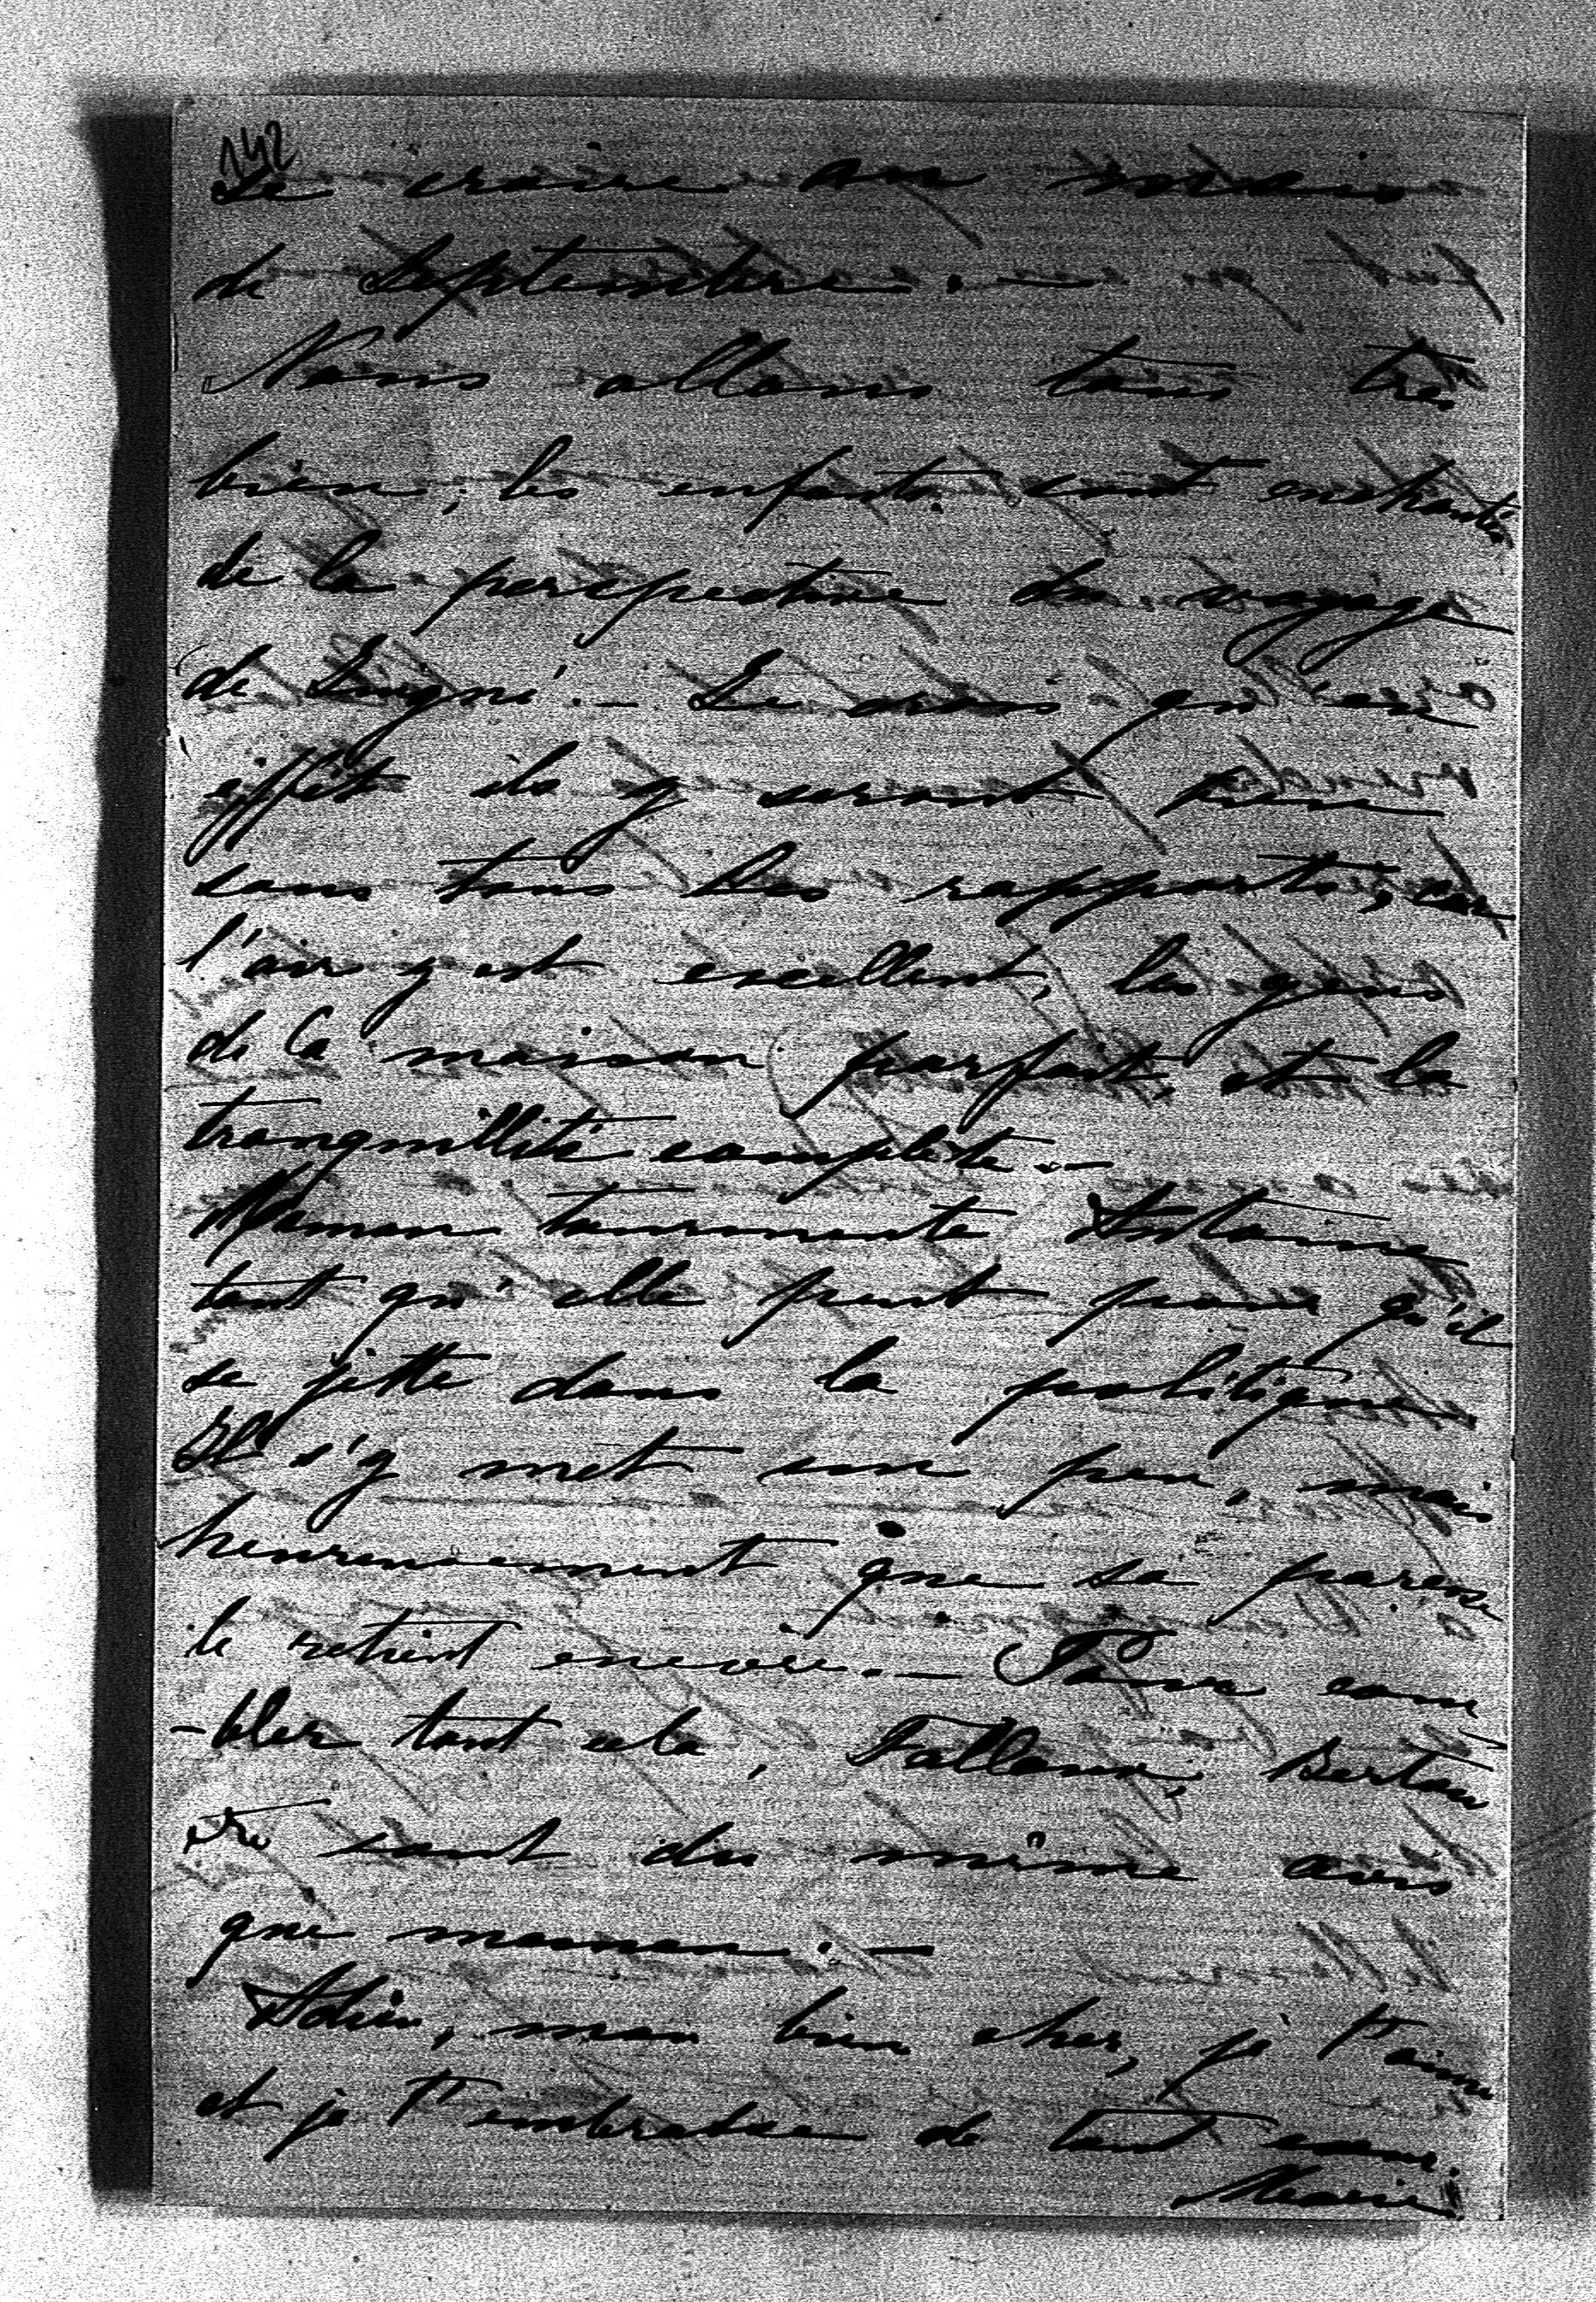 142
Le croire au mois
de Septembre. —
Nous allons tous très
bien, les enfants sont enchantés
de la perspective du voyage
de Lugné. — Je crois qu'en
effet ils y seront bien
sous tous les rapports, car
l'air y est excellent, les gens
de la maison parfait, et la
tranquillité complète. —
Maman tourmente Antoine
tant qu'elle peut pour qu'il
se jette dans la politique.
Il s'y met un peu, mais
heureusement que sa paresse
le retient encore. — Pour com
-bler tout cela, Falloux, Bertou
etc sont du même avis
que maman. —
Adieu, mon bien cher, je t'aime
et je t'embrasse de tout cœur.
Marie